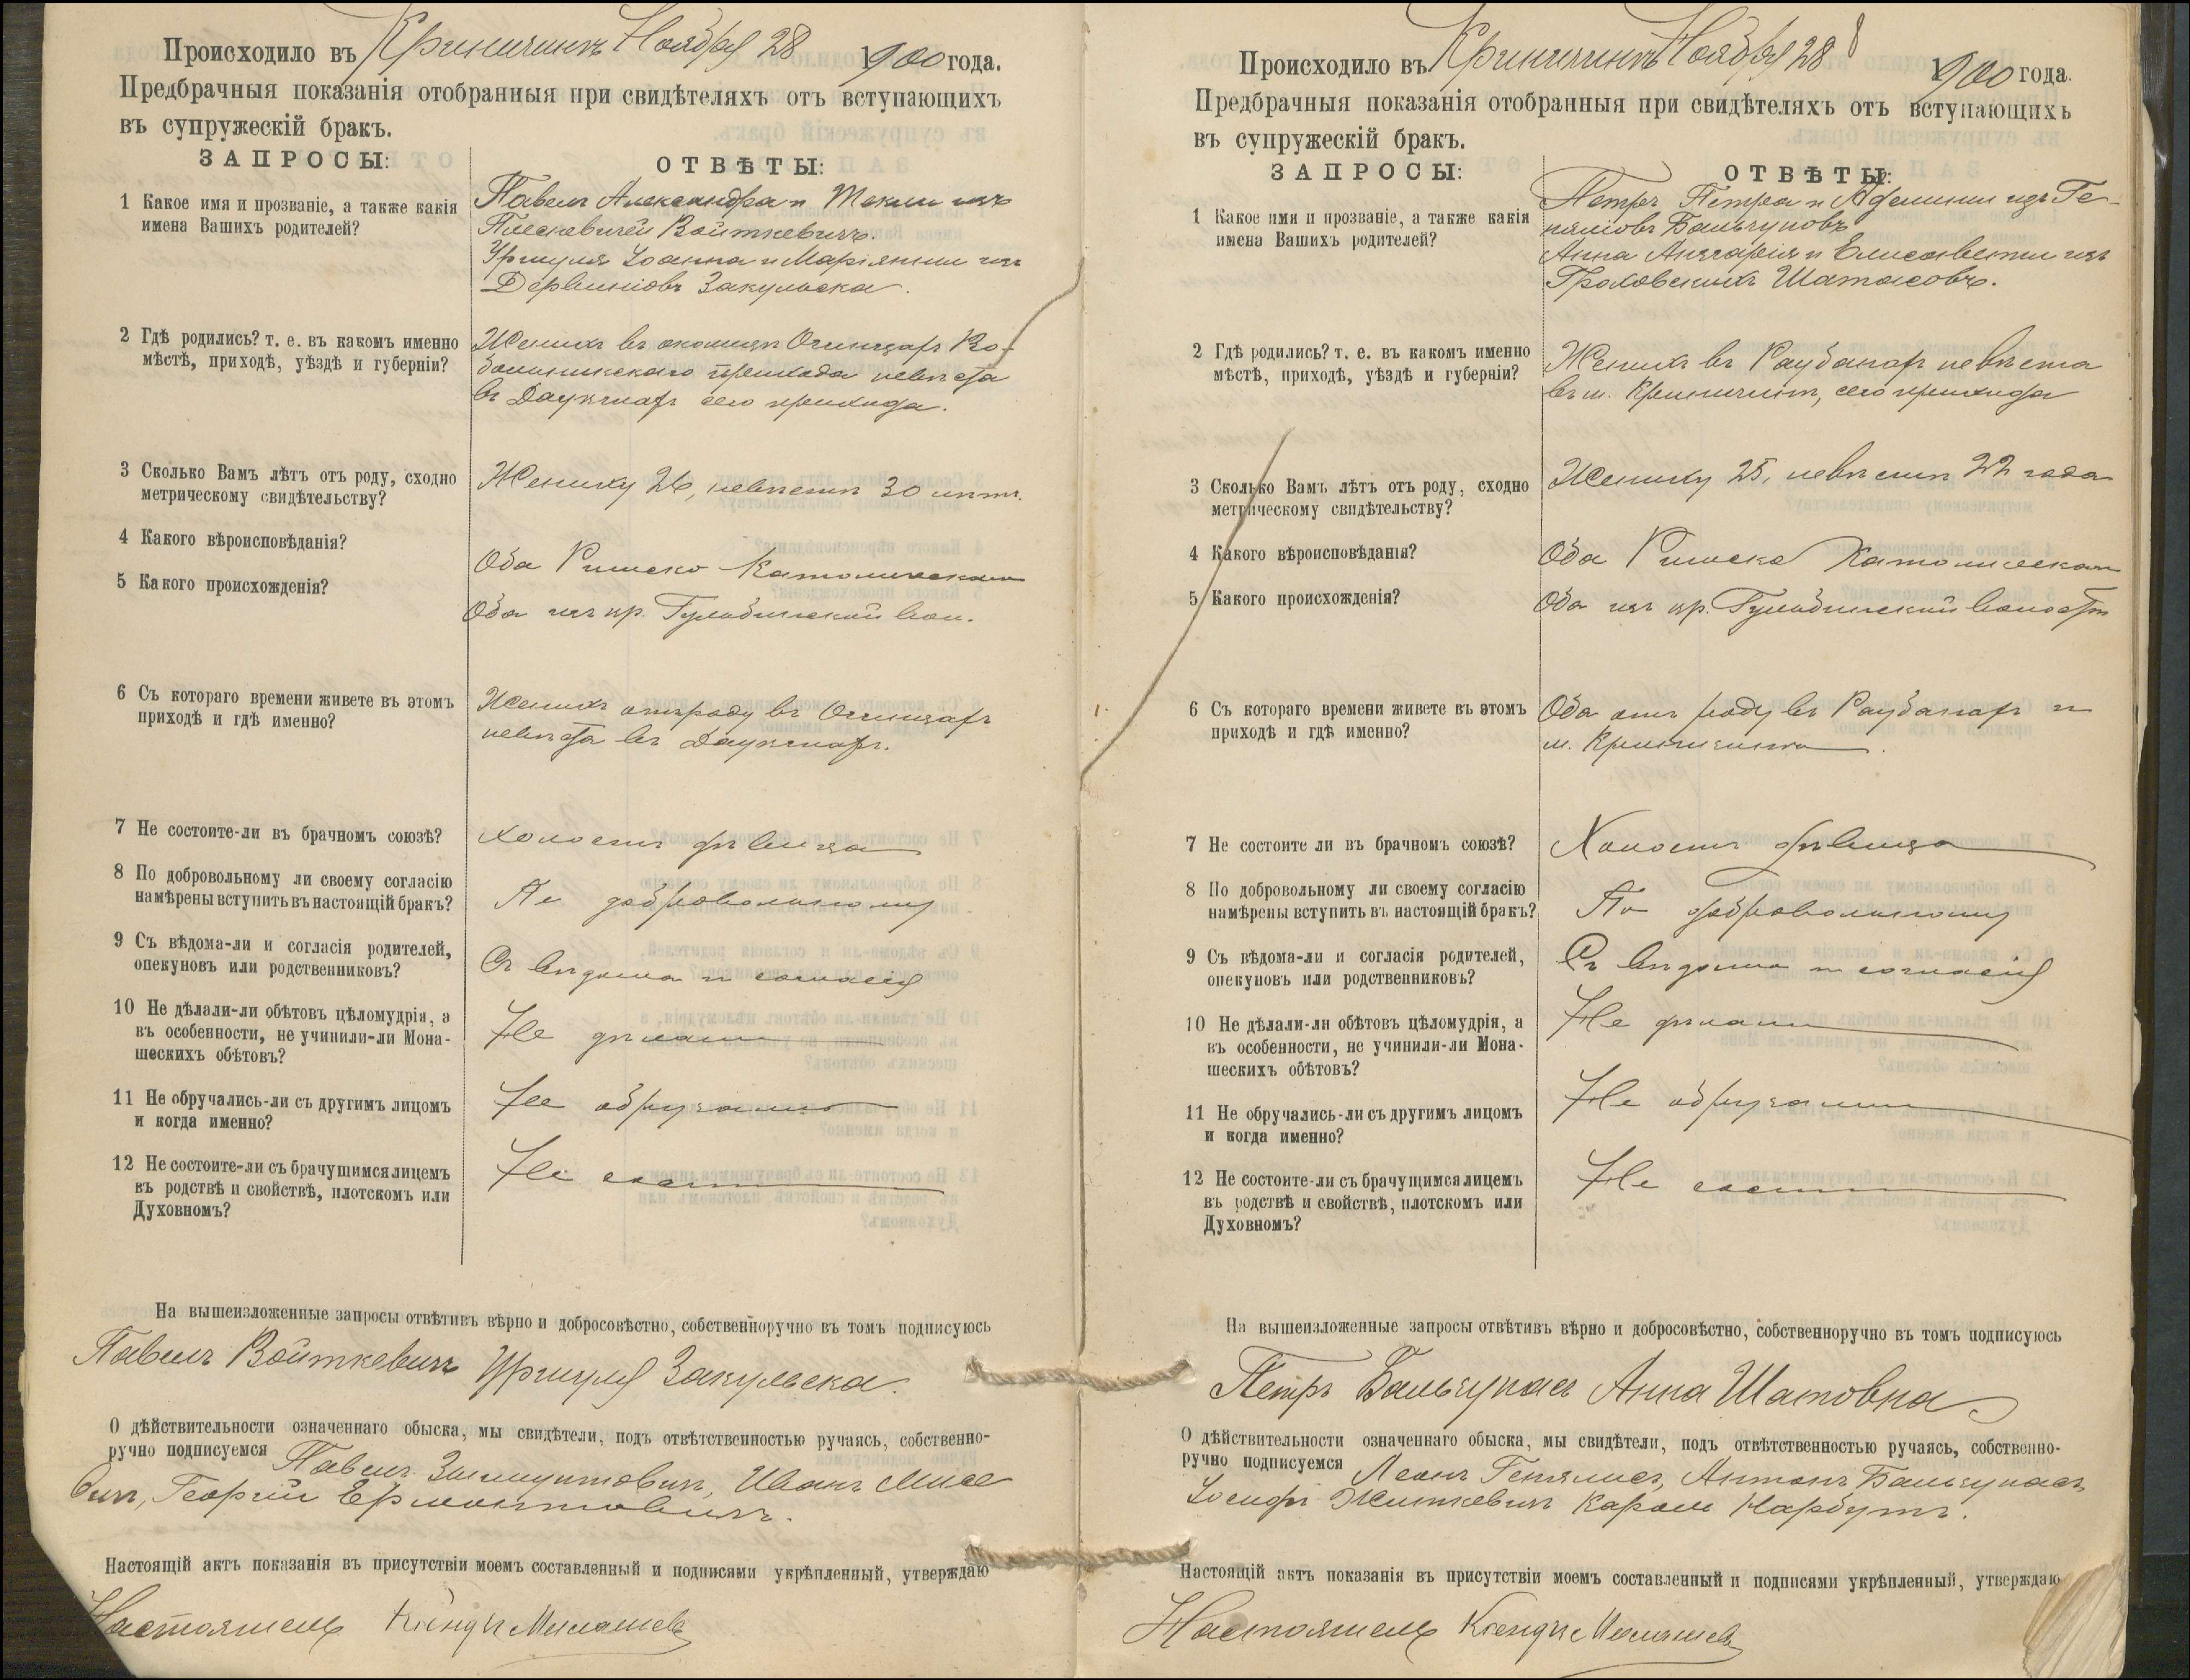 Происходило въ Криничинъ Ноября 28 1900 года.
Предбрачныя показанія отобранныя при свидѣтеляхъ отъ вступающихъ
въ супружескій бракъ.
ЗАПРОСЫ:
ОТВѢТЫ:
1 Какое имя и прозваніе, а также какія
имена Вашихъ родителей?
Павелъ Александра и Текли изъ
Войткевичъ.
Уршуля Іоанна и Маріянны изъ
Закульска.
2 Гдѣ родились? т. е. въ какомъ именно
мѣстѣ, приходѣ, уѣздѣ и губерніи?
Женихъ въ околицѣ
прихода невѣста
въ сего прихода.
3 Сколько Вамъ лѣтъ отъ роду, сходно
метрическому свидѣтельству?
Жениху 26, невѣстѣ 30 лѣтъ.
4 Какого вѣроисповѣданія?
Оба Римско Католическаго
5 Какого происхожденія?
Оба изъ кр. вол.
6 Съ котораго времени живете въ этомъ
приходѣ и гдѣ именно?
Женихъ отъ роду въ
невѣста въ
7 Не состоите-ли въ брачномъ союзѣ?
Холостъ дѣвица
8 По добровольному ли своему согласію
намѣрены вступить въ настоящій бракъ?
По добровольному
9 Съ вѣдома-ли и согласія родителей,
опекуновъ или родственниковъ?
Съ вѣдома и согласія
10 Не дѣлали-ли обѣтовъ цѣломудрія, а
въ особенности, не учинили-ли Мона-
шескихъ обѣтовъ?
Не дѣлали
11 Не обручались-ли съ другимъ лицомъ
и когда именно?
Не обручались
12 Не состоите-ли съ брачущимся лицемъ
въ родствѣ и свойствѣ, плотскомъ или
Духовномъ?
Не сост
На вышеизложенные запросы отвѣтивъ вѣрно и добросовѣстно, собственноручно въ томъ подписуюсь
Павелъ Войткевичъ Уршуля Закульска.
О дѣйствительности означеннаго обыска, мы свидѣтели, подъ отвѣтственностью ручаясь, собственно-
ручно подписуемся Павелъ Иванъ
Георгій
Настоящій актъ показанія въ присутствіи моемъ составленный и подписями укрѣпленный, утверждаю
Настоятель Ксендзъ
Происходило въ Криничинъ Ноября 28 1900 года.
Предбрачныя показанія отобранныя при свидѣтеляхъ отъ вступающихъ
въ супружескій бракъ.
ЗАПРОСЫ:
ОТВѢТЫ:
1 Какое имя и прозваніе, а также какія
имена Вашихъ родителей?
Петръ Петра и изъ Ге-
Бальчуповъ
Анна и Елисаветы изъ
Шатасовъ.
2 Гдѣ родились? т. е. въ какомъ именно
мѣстѣ, приходѣ, уѣздѣ и губерніи?
Женихъ въ невѣста
въ м. сего прихода
3 Сколько Вамъ лѣтъ отъ роду, сходно
метрическому свидѣтельству?
Жениху 25, невѣстѣ 22 года
4 Какого вѣроисповѣданія?
Оба Римско Католическаго
5 Какого происхожденія?
Оба изъ кр. волости
6 Съ котораго времени живете въ этомъ
приходѣ и гдѣ именно?
Оба отъ роду въ и
м.
7 Не состоите ли въ брачномъ союзѣ?
Холостъ дѣвица
8 По добровольному ли своему согласію
намѣрены вступить въ настоящій бракъ?
По добровольному
9 Съ вѣдома-ли и согласія родителей,
опекуновъ или родственниковъ?
Съ вѣдома и согласія
10 Не дѣлали-ли обѣтовъ цѣломудрія, а
въ особенности, не учинили-ли Мона-
шескихъ обѣтовъ?
Не дѣлали
11 Не обручались-ли съ другимъ лицомъ
и когда именно?
Не обручались
12 Не состоите-ли съ брачущимся лицемъ
въ родствѣ и свойствѣ, плотскомъ или
Духовномъ?
Не сост
На вышеизложенные запросы отвѣтивъ вѣрно и добросовѣстно, собственноручно въ томъ подписуюсь
Петръ Бальчупасъ Анна Шатовна
О дѣйствительности означеннаго обыска, мы свидѣтели, подъ отвѣтственностью ручаясь, собственно-
ручно подписуемся Леонъ Антонъ Бальчупасъ
Іосифъ Жилкевичъ Кароль Нарбутъ.
Настоящій актъ показанія въ присутствіи моемъ составленный и подписями укрѣпленный, утверждаю
Настоятель Ксендзъ